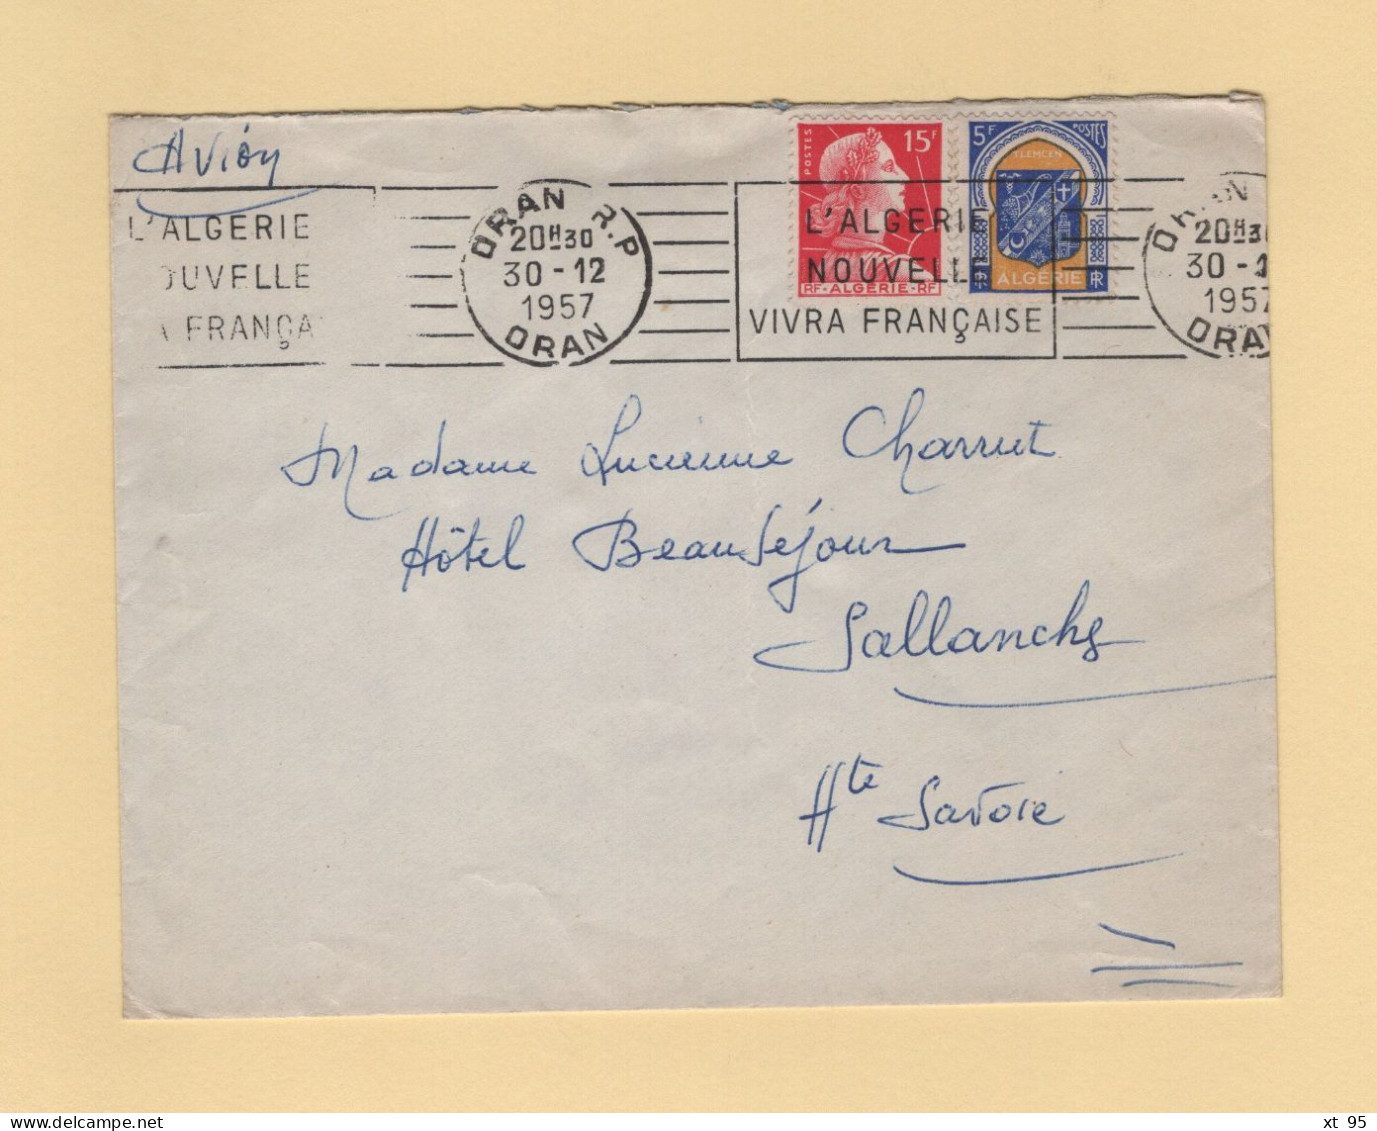 Avion
L'ALGERIE
OUVELLE
A FRANÇA
ORAN R.P
20H30
30-12
1957
ORAN
POSTES
15F
RF-ALGERIE-RF
5F POSTES
TLEMCEN
ALGÉRIE RF
L'ALGERIE
NOUVELLE
VIVRA FRANÇAISE
20H30
30-1
1957
ORA
Madame Lucienne Charrut
Hôtel Beauséjour
Sallanches
Hte Savoie
xt 95